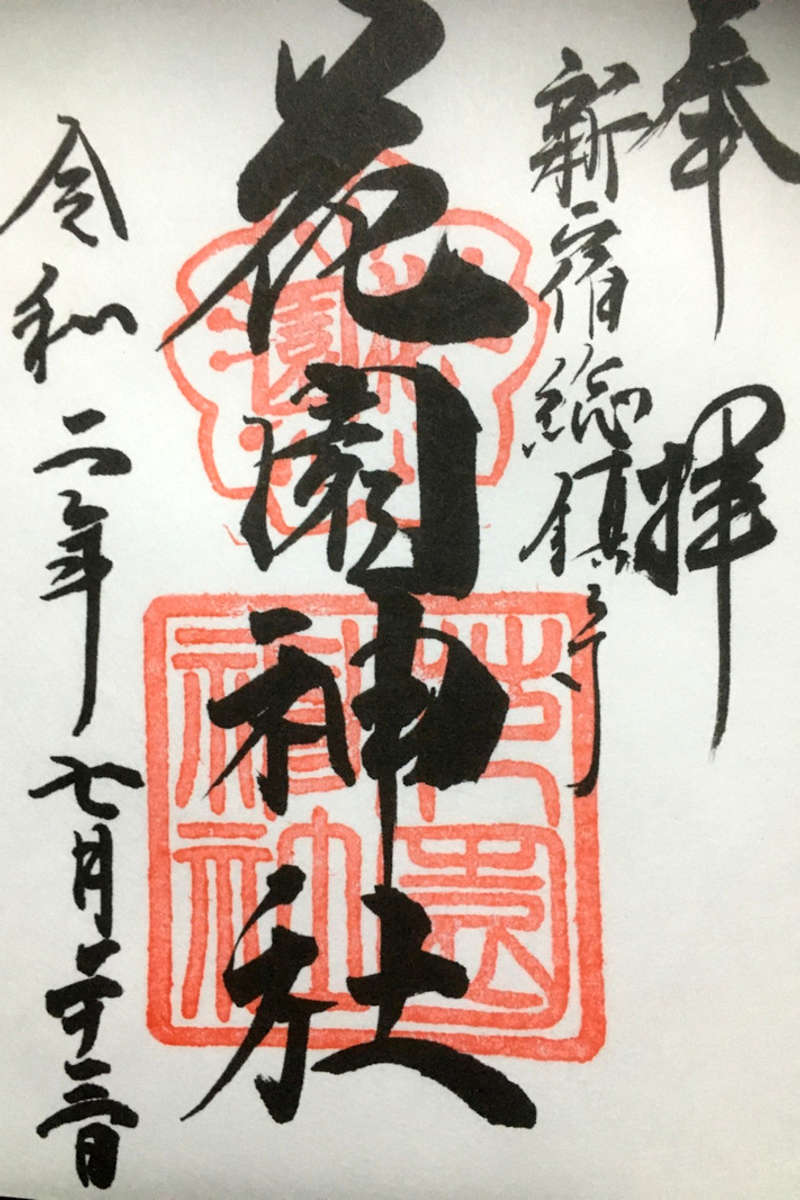 奉拝
新宿総鎮守
花園神社
花園
神社
令和二年七月二十三日